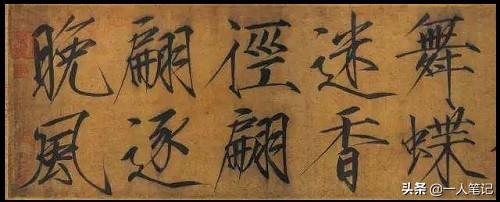 舞蝶
迷香
徑翩
翩逐
晚風
头条 @一人笔记